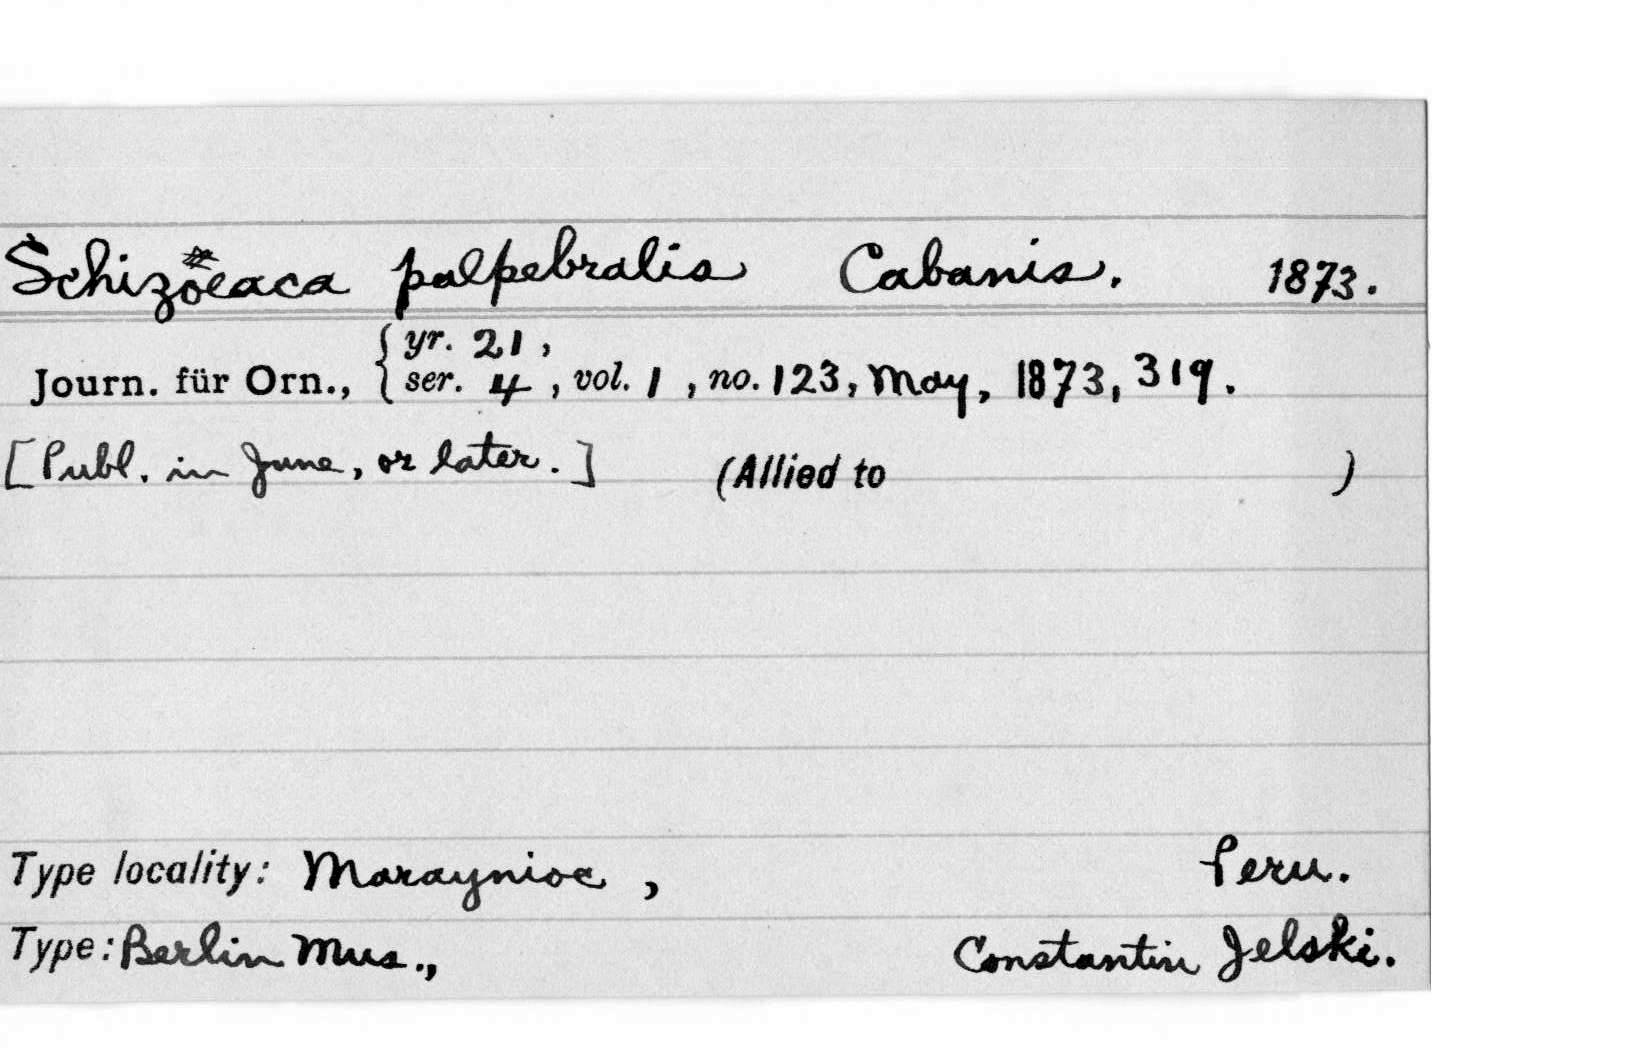 Schizoeaca palpebralis Cabanis. 1873.
yr. 21,
Journ. für Orn., { ser. 4, vol. 1, no. 123, May, 1873, 319.
[Publ. in June, or later.] (Allied to )
Type locality: Maraynioc, Peru.
Type: Berlin Mus., Constantin Jelski.